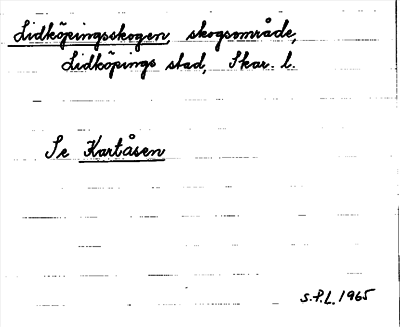 Lidköpingsskogen, skogsområde,
Lidköpings stad, Skar. l.
Se Kartåsen
S.P.L. 1965